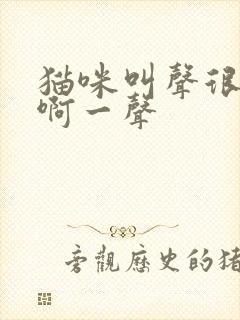 猫咪叫聲很
啊一聲
旁觀歷史的猪